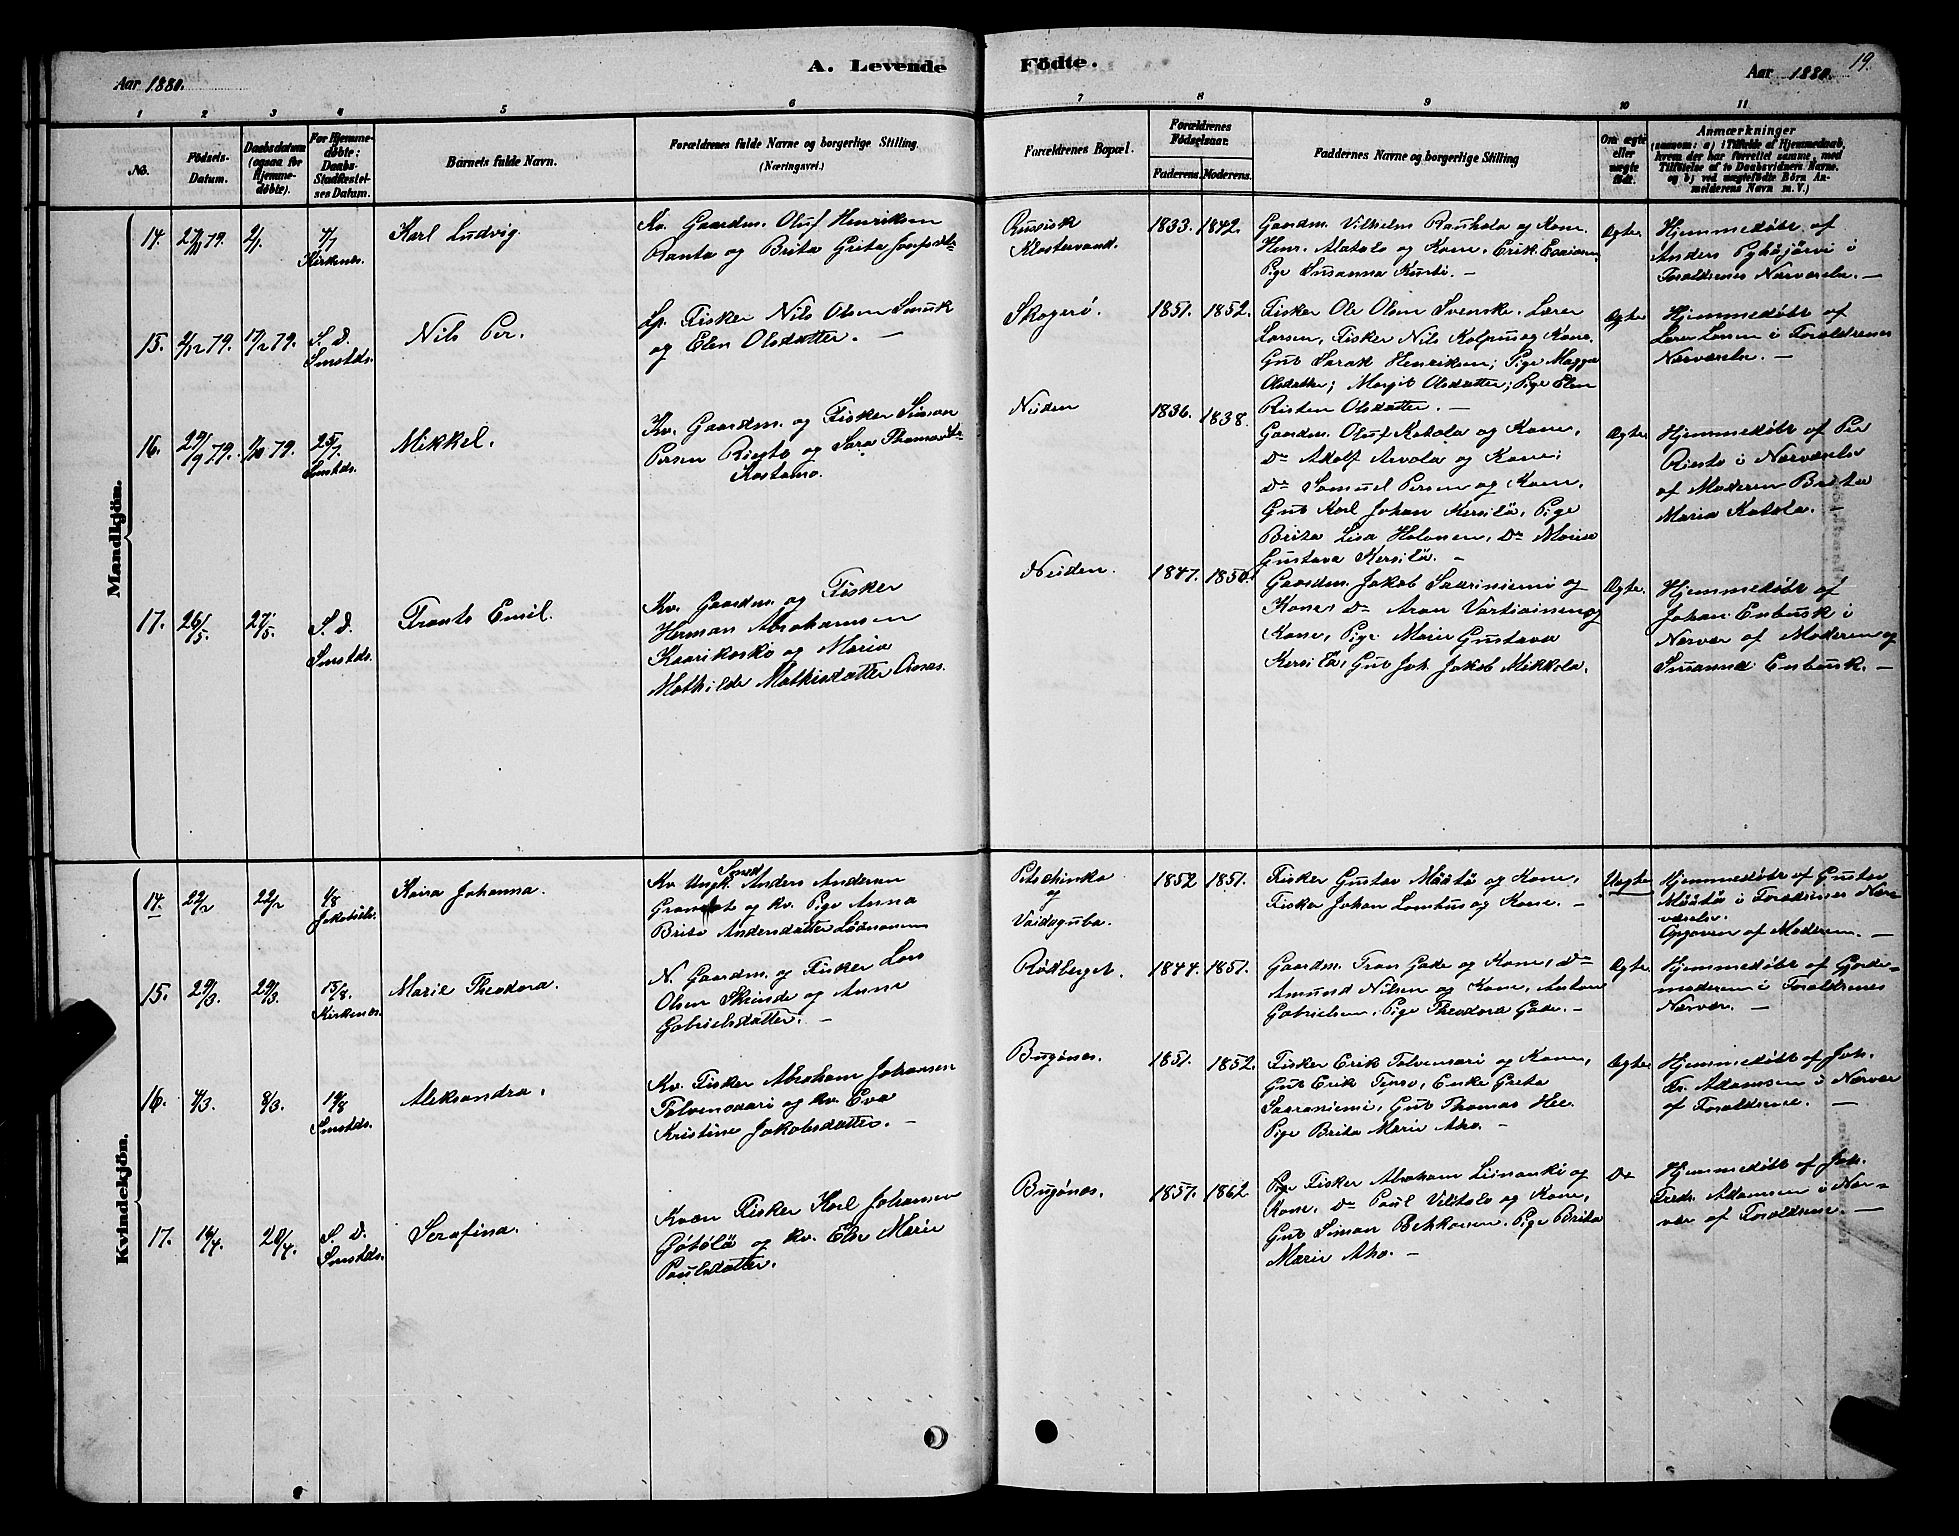 Aar 1880.
A. Levende
Födte.
Aar 1880.
19.
1 2 3 4 5 6 7 8 9 10 11
No.
Födsels-
Datum.
Daabsdatum
(ogsaa for
Hjemme-
døbte).
For Hjemme-
døbte:
Daabs-
Stadfæstel-
ses Datum.
Barnets fulde Navn.
Forældrenes fulde Navne og borgerlige Stilling
(Næringsvei.)
Forældrenes Bopæl.
Forældrenes
Fødselsaar.
Faderens. Moderens.
Faddernes Navne og borgerlige Stilling
Om ægte
eller
uægte
født.
Anmærkninger
(saasom: a) i Tilfælde af Hjemmedaab,
hvem der har forrettet samme, med
Tilføielse af to Daabsvidners Navne,
og b) ved uægtefødte Børn An-
melderens Navn m. V.)
Mandkjön.
14.
79. 2/1. 4/7
Kirkenes.
Karl Ludvig.
Kv. Gaardm. Oluf Henriksen
Ranta og Brita Greta
Russisk
Klostervand.
1833. 1842.
Gaardm. Vilhelm Rauhala og Kone.
Henr. Alatalo og Kone, Erik
Pige Susanna Kurti. —
Ægte.
Hjemmedøbt af
Anders Pyhäjärvi i
Forældrenes Nærværelse. —
15. 2/12 79. 17/12 79. S. D.
Smstds.
Nils Per.
Lp. Fisker Nils Olsen
og Elen Olsdatter. —
Skogerø.
1851. 1852.
Fisker Ole Olsen Svensk. Lærer
Larsen, Fisker Nils Kolpus og Kone,
Gut Sarak Henriksen; Pige Magga
Olsdatter; Margit Olsdatter; Pige Elen
Risten Olsdatter. —
Ægte.
Hjemmedøbt af
Lærer Larsen i Forældrenes
Nærværelse. —
16. 29/9 79. 79. 25/7
Smstds.
Mikkel.
Kv. Gaardm. og Fisker Simon
Persen Riesto og Sara
Kostamo.
Neiden
1836. 1838.
Gaardm. Oluf Katola og Kone,
Do Adolf Arvola og Kone;
Do Samuel Persen og Kone,
Gut Karl Johan Kersilö, Pige
Brita Lisa Halonen, Do Maria
Gustava Kersilö. —
Ægte.
Hjemmedøbt af Per
Riesto i Nærværelse
af Moderen Brita
Maria Katola. —
17. 26/5. 27/5. S. D.
Smstds.
Frants Emil.
Kv. Gaardm. og Fisker
Herman Abrahamsen
Kaarikoski og Maria
Mathilde Mathisdatter
Neiden.
1847. 1850.
Gaardm. Jakob Saariniemi og
Kone, Do Aron Vartiainen og
Kone, Pige Marie Gustava
Kersilö, Gut Joh. Jakob Mikkola.
Ægte.
Hjemmedøbt af
Johan Enbusk i
Nærvær af Moderen og
Susanna Enbusk. —
Kvindekjön.
14. 22/2 22/2 1/8
Kaisa Johanna.
Smed
Kv. Ungk. Anders Andersen
og kv. Pige Anna
Brita Andersdatter
Petschinka
og
Vaidaguba.
1852 1851.
Fisker Gustav Määtö og Kone,
Fisker Johan og Kone. —
Uægte.
Hjemmedøbt af Gustav
Määtö i Forældrenes Nær-
værelse.
Opgaven af Moderen. —
15. 29/3. 29/3. 15/8.
Kirkenes.
Marie Theodora.
N. Gaardm. og Fisker Lars
Olsen og Anne
Gabrielsdatter. —
Rødberget.
1844. 1851.
Gaardm. Tran Gade og Kone, Do
Amund Nilsen og Kone, Anton
Gabrielsen, Pige Theodora Gade. —
Ægte.
Hjemmedøbt af Gjorde-
moderen i Forældrenes
Nærvær. —
16. 4/3. 8/3. 19/8
Smstds.
Aleksandra.
Kv. Fisker Abraham Johansen
Talvensaari og kv. Eva
Kristine Jakobsdatter. —
Bugønes.
1851. 1852.
Fisker Erik Talvensari og Kone,
Gut Erik, Enke Greta
Saaraniemi, Gut Thomas
Pige Brita Marie Aho. —
Ægte.
Hjemmedøbt af Joh.
Fr. Adamsen i Nærvær
af Forældrene. —
17. 19/4. 20/4. S. D.
Smstds.
Serafina.
Kvæn Fisker Karl Johansen
og kv. Else Marie
Paulsdatter.
Bugønes.
1857. 1862
Fisker Abraham Liinanki og
Kone, Do Paul og Kone,
Gut Simon, Pige Brita
Marie Aho. —
Do
Hjemmedøbt af Joh.
Fredr. Adamsen i Nær-
vær af Forældrene. —